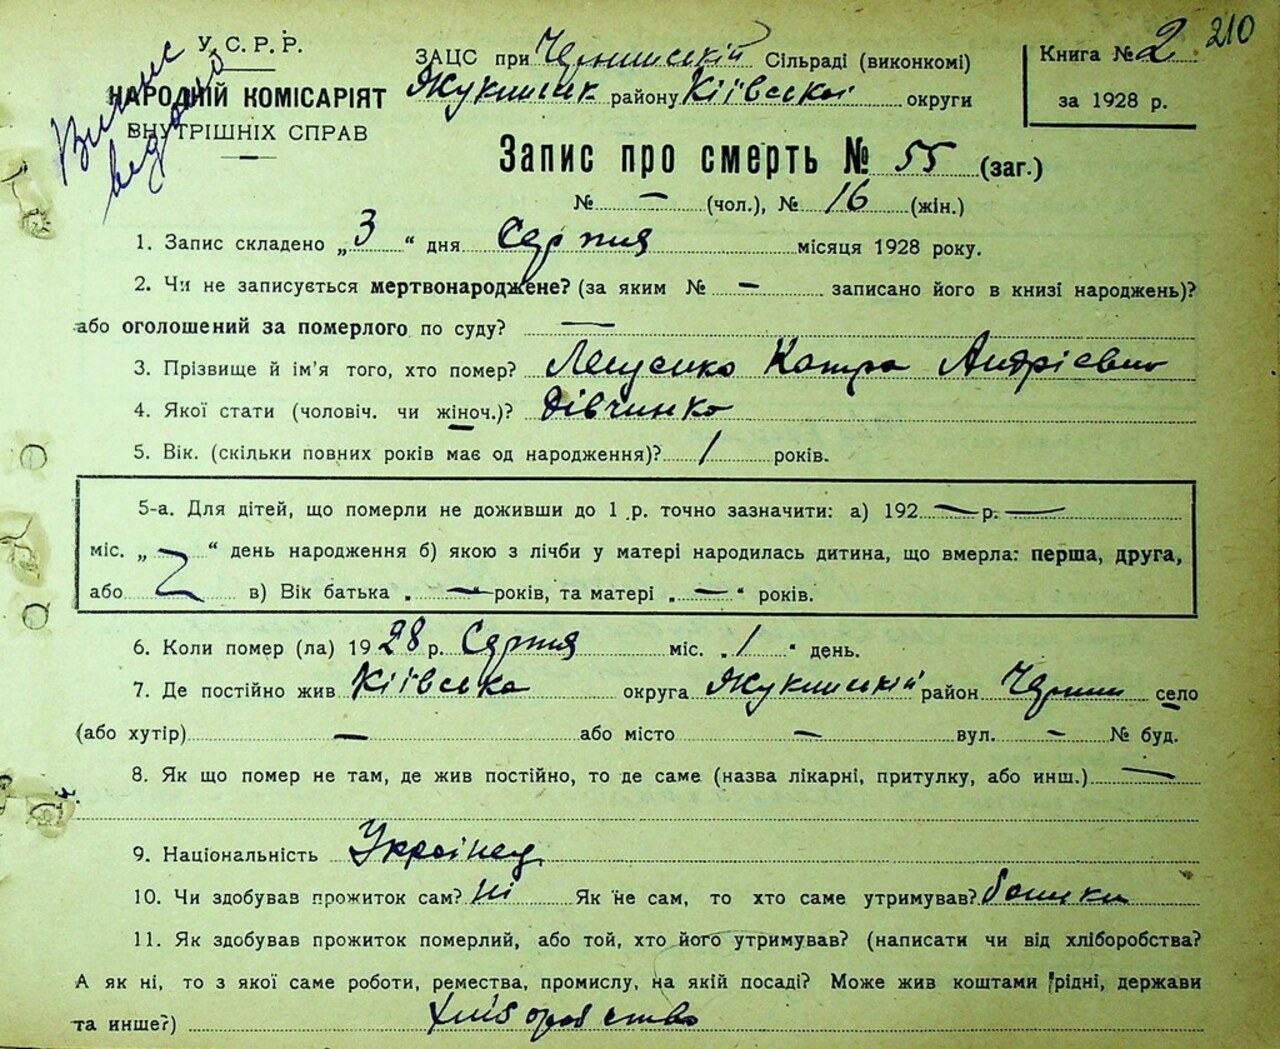 210
У.С.Р.Р.
НАРОДНІЙ КОМІСАРІЯТ
ВНУТРІШНІХ СПРАВ
Випис видано
ЗАЦС при Сільраді (виконкомі)
району Київської округи
Книга № 2
за 1928 р.
Запис про смерть № 55 (заг.)
№ — (чол.), № 16 (жін.)
1. Запис складено „3“ дня Серпня місяця 1928 року.
2. Чи не записується мертвонароджене? (за яким № — записано його в книзі народжень)?
або оголошений за померлого по суду? —
3. Прізвище й ім'я того, хто помер? Катря Андрієвна
4. Якої стати (чоловіч. чи жіноч.)? Дівчинка
5. Вік. (скільки повних років має од народження)? 1 років.
5-а. Для дітей, що померли не доживши до 1 р. точно зазначити: а) 192 — р. —
міс. „ “ день народження б) якою з лічби у матері народилась дитина, що вмерла: перша, друга,
або в) Вік батька „—“ років, та матері „—“ років.
6. Коли помер (ла) 1928 р. Серпня міс. „1“ день.
7. Де постійно жив Київська округа район село
(або хутір) — або місто — вул. — № буд.
8. Як що помер не там, де жив постійно, то де саме (назва лікарні, притулку, або инш.) —
9. Національність Українец
10. Чи здобував прожиток сам? Ні Як не сам, то хто саме утримував? батьки
11. Як здобував прожиток померлий, або той, хто його утримував? (написати чи від хліборобства?
А як ні, то з якої саме роботи, ремества, промислу, на якій посаді? Може жив коштами рідні, держави
та инше?) хліборобство